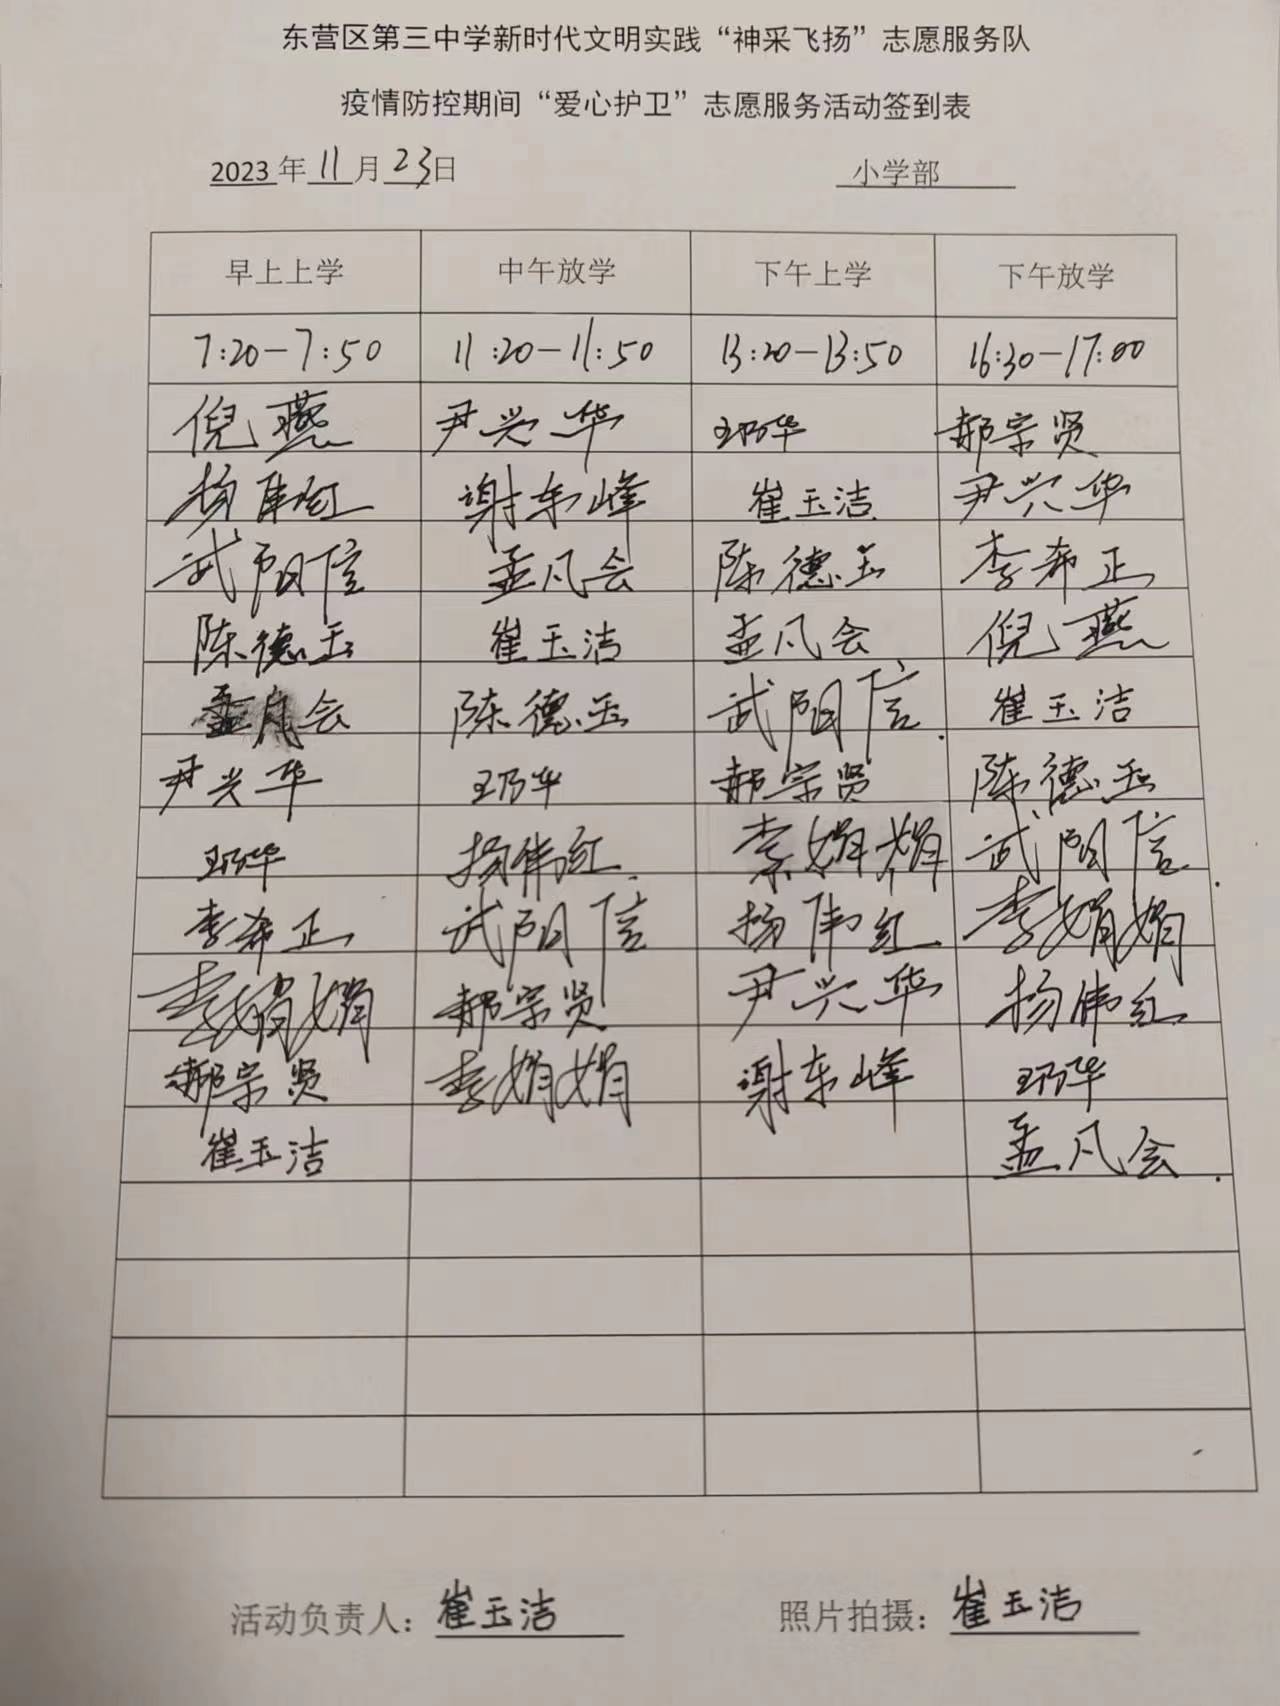 东营区第三中学新时代文明实践“神采飞扬”志愿服务队
疫情防控期间“爱心护卫”志愿服务活动签到表
2023年11月23日 小学部
早上上学 中午放学 下午上学 下午放学
7:20-7:50 11:20-11:50 13:20-13:50 16:30-17:00
倪燕 尹兴华 王乃华 郝宗贤
杨伟红 谢东峰 崔玉洁 尹兴华
武阳信 孟凡会 陈德玉 李希正
陈德玉 崔玉洁 孟凡会 倪燕
孟凡会 陈德玉 武阳信 崔玉洁
尹兴华 王乃华 郝宗贤 陈德玉
王乃华 杨伟红 李娟娟 武阳信
李希正 武阳信 杨伟红 李娟娟
李娟娟 郝宗贤 尹兴华 杨伟红
郝宗贤 李娟娟 谢东峰 王乃华
崔玉洁 孟凡会
活动负责人：崔玉洁 照片拍摄：崔玉洁